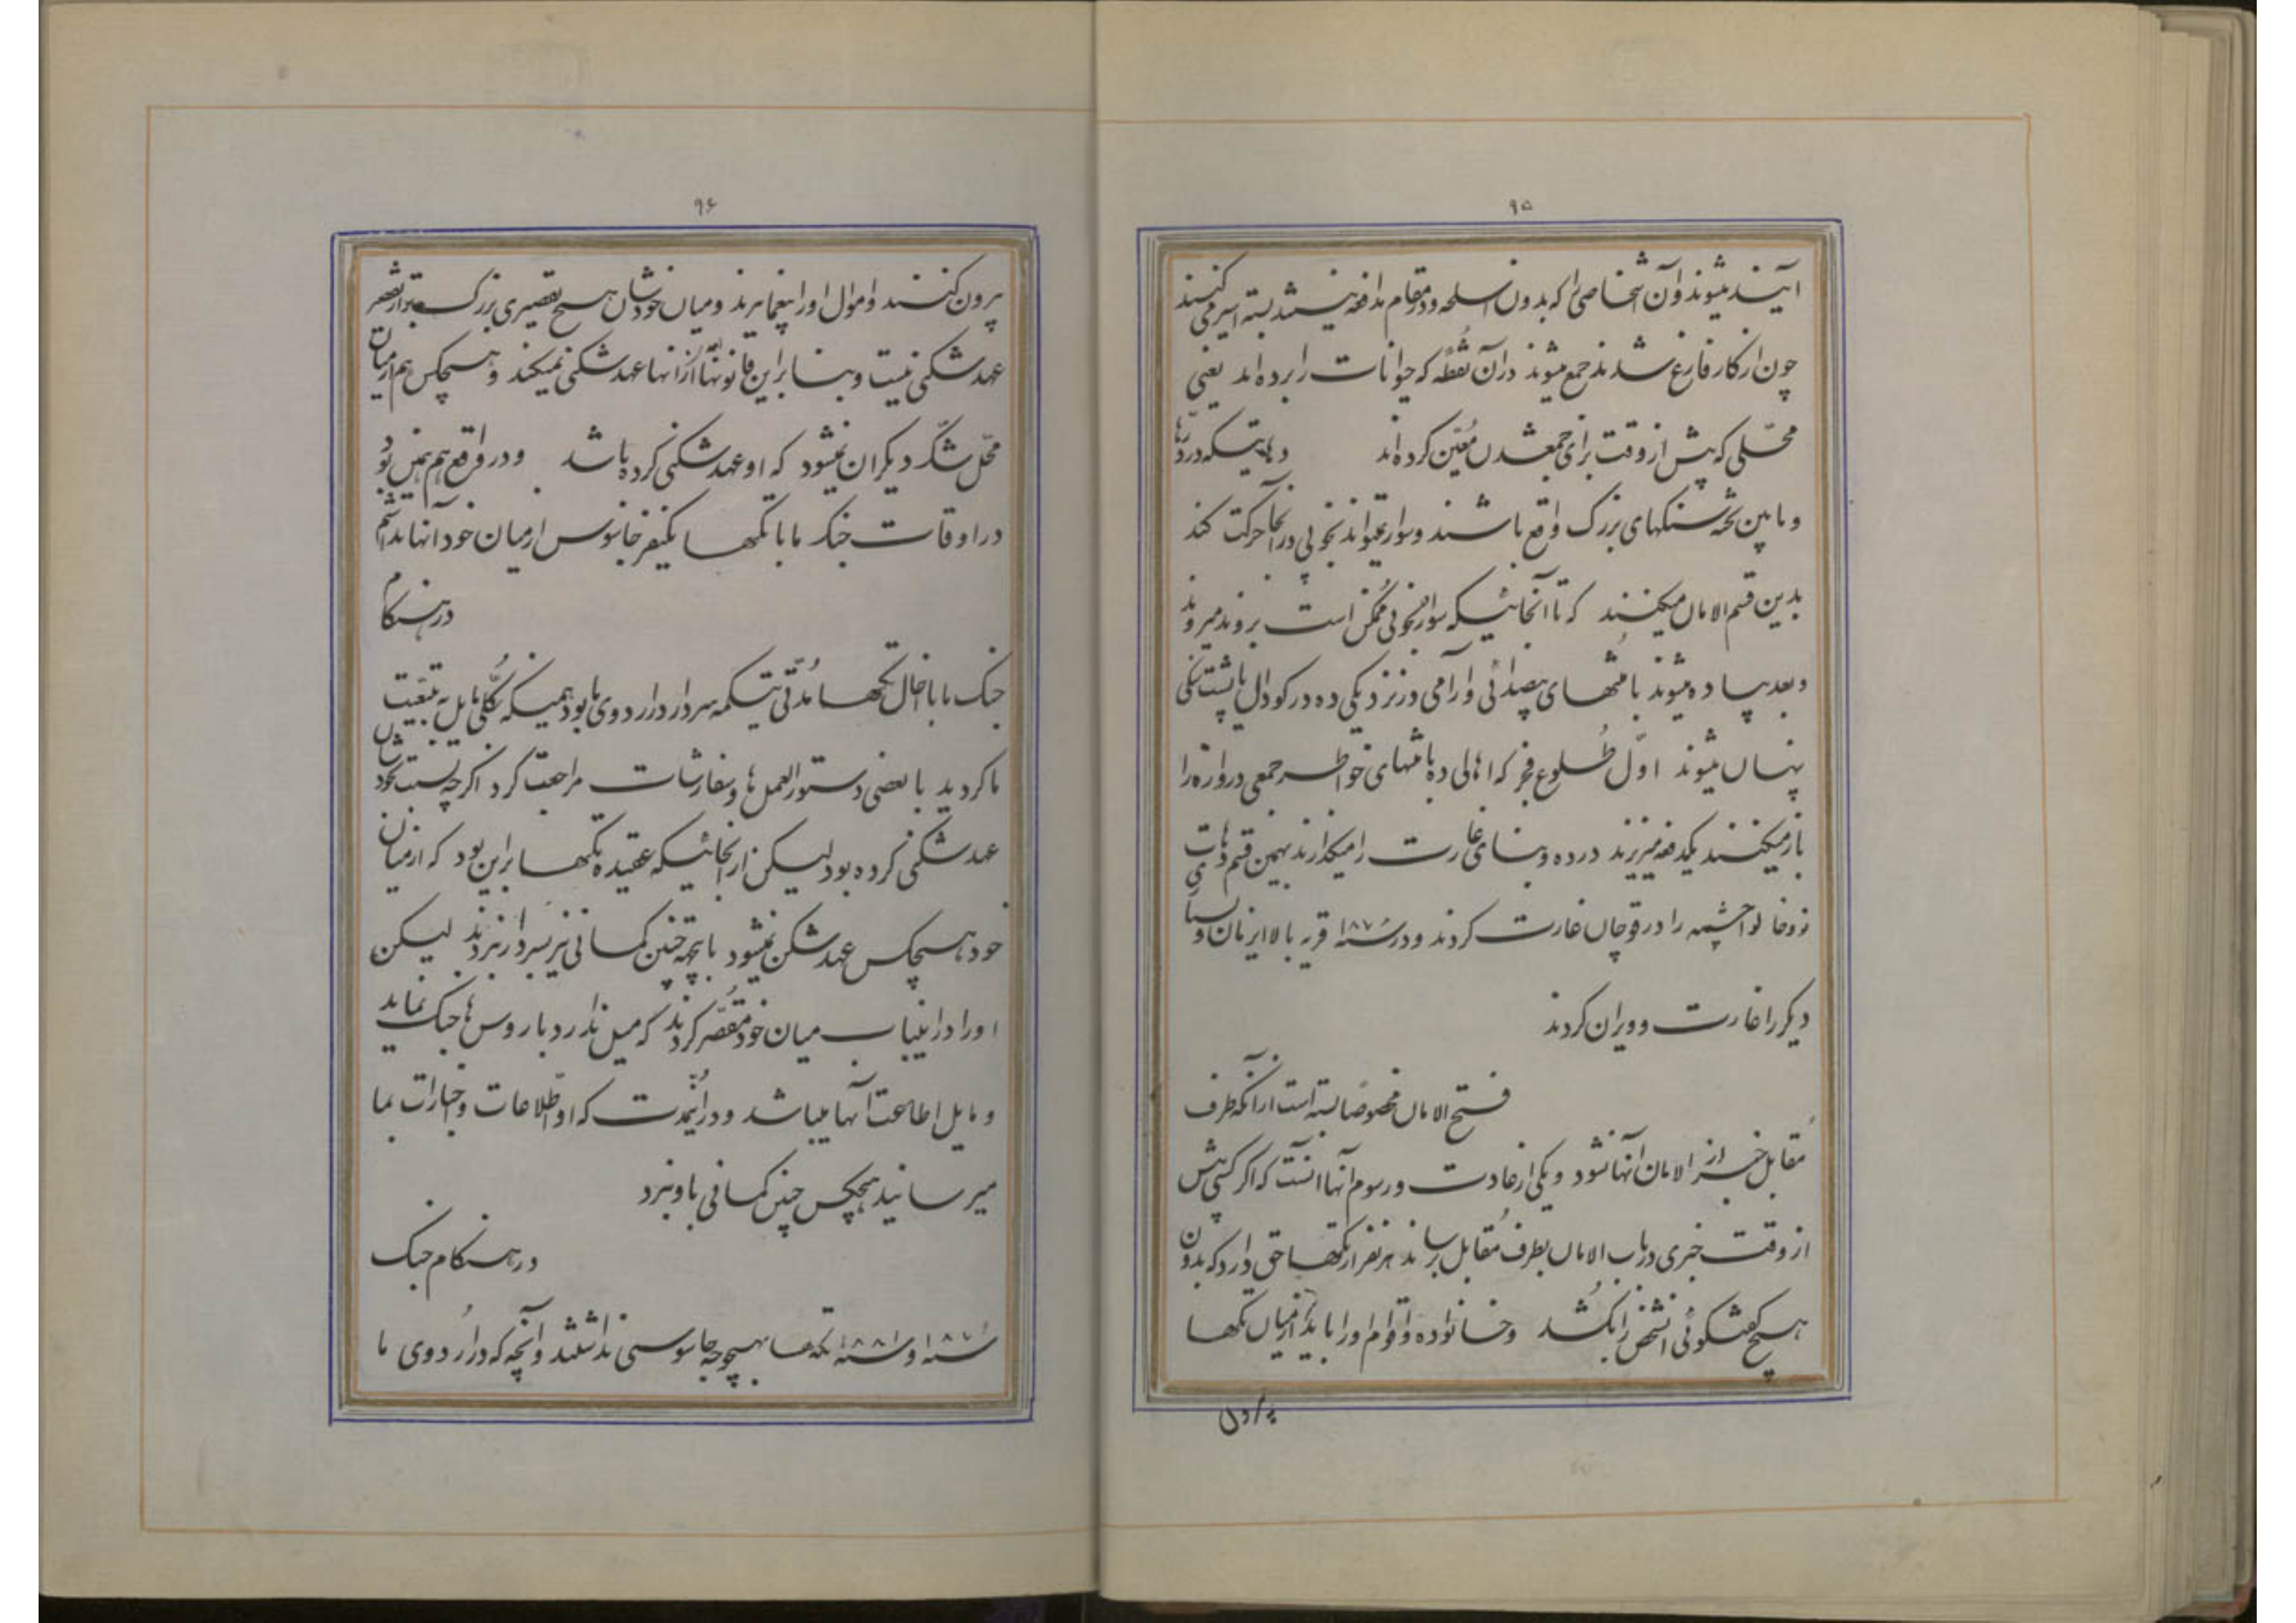 ۹۵
آیند میشوند و آن اشخاصی را که بدون اسلحه و در مقام مدافعه نیستند بسته اسیر می کنند
چون از کار فارغ شدند جمع میشوند در آن نقطه که حیوانات را برده اند یعنی
محلّی که پیش از وقت برای جمعشدن مُعیّن کرده اند دهاتیکه در درّه‌ها
و مابین تخته سنگهای بزرگ واقع باشند و سوار نمیتواند بخوبی در آنجا حرکت کند
بدین قسم الامان میکنند که تا آنجائیکه سواره بخوبی مُمکن است بروند میروند
و بعد پیاده میشوند با منتهای بیصدائی و آرامی در نزدیکی ده در گودال یا پشت تپّه
پنهان میشوند اوّل طُلوع فجر که اهالی ده با منتهای خواطر جمعی دروازه را
باز میکنند یکدفعه میریزند در ده و بنای غارت را میگذارند بهمین قسم دهات
نوخالو اچشمه را در قوچان غارت کردند و در سنه ۱۸۷ قریه بالا ایرنان و
دیگر را غارت و ویران کردند
فتح الامان مخصوصاً بسته است از آنکه طرف
مُقابل خبر از الامان آنها نشود و یکی از عادت و رسوم آنها اینست که اگر کسی پیش
از وقت خبری در باب الامان بطرف مُقابل برساند هر نفر از تکه‌ها حق دارد که بدون
هیچ گفتگوئی آنشخص را بکُشد و خانواده و اقوام او را باید از میان تکه‌ها
بیرون
۹۶
بیرون کنند و اموال او را بیغما ببرند و میان خودشان هیچ تقصیری بزرگتر از تقصیر
عهد شکنی نیست و بنا براین قانون آنها از آنها عهد شکنی نمیکند و هیچکس هم از میان
محلّ شک دیگران نمیشود که او عهد شکنی کرده باشد و در واقع هم همین بود
در اوقات جنگ ما با تکه‌ها یکنفر جاسوس از میان خود آنها نداشتیم
در هنگام
جنگ ما با اخال تکه‌ها مُدّتی تیکمه سردار در اردوی ما بود همینکه بکُلّی مایل به تبعیّت
ما گردید با بعضی دستورالعمل‌ها و سفارشات مراجعت کرد اگرچه نسبت بخودشان
عهد شکنی کرده بود لیکن از آنجائیکه عقیده تکه‌ها براین بود که از میان
خود هیچکس عهد شکن نمیشود باینجهة چنین گمانی نیز بسردار نبردند لیکن
او را در اینباب میان خود مُقصّر کردند که میل ندارد با روس‌ها جنگ نماید
و مایل اطاعت آنها میباشد و در اینمُدّت که او اطّلاعات و اخبارات بما
میرسانید هیچکس چنین گمانی باو نبرد
در هنگام جنگ
سنه ۱۸۷ و سنه ۱۸۸۱ تکه‌ها بهیچوجه جاسوسی نداشتند و آنچه که در اُردوی ما